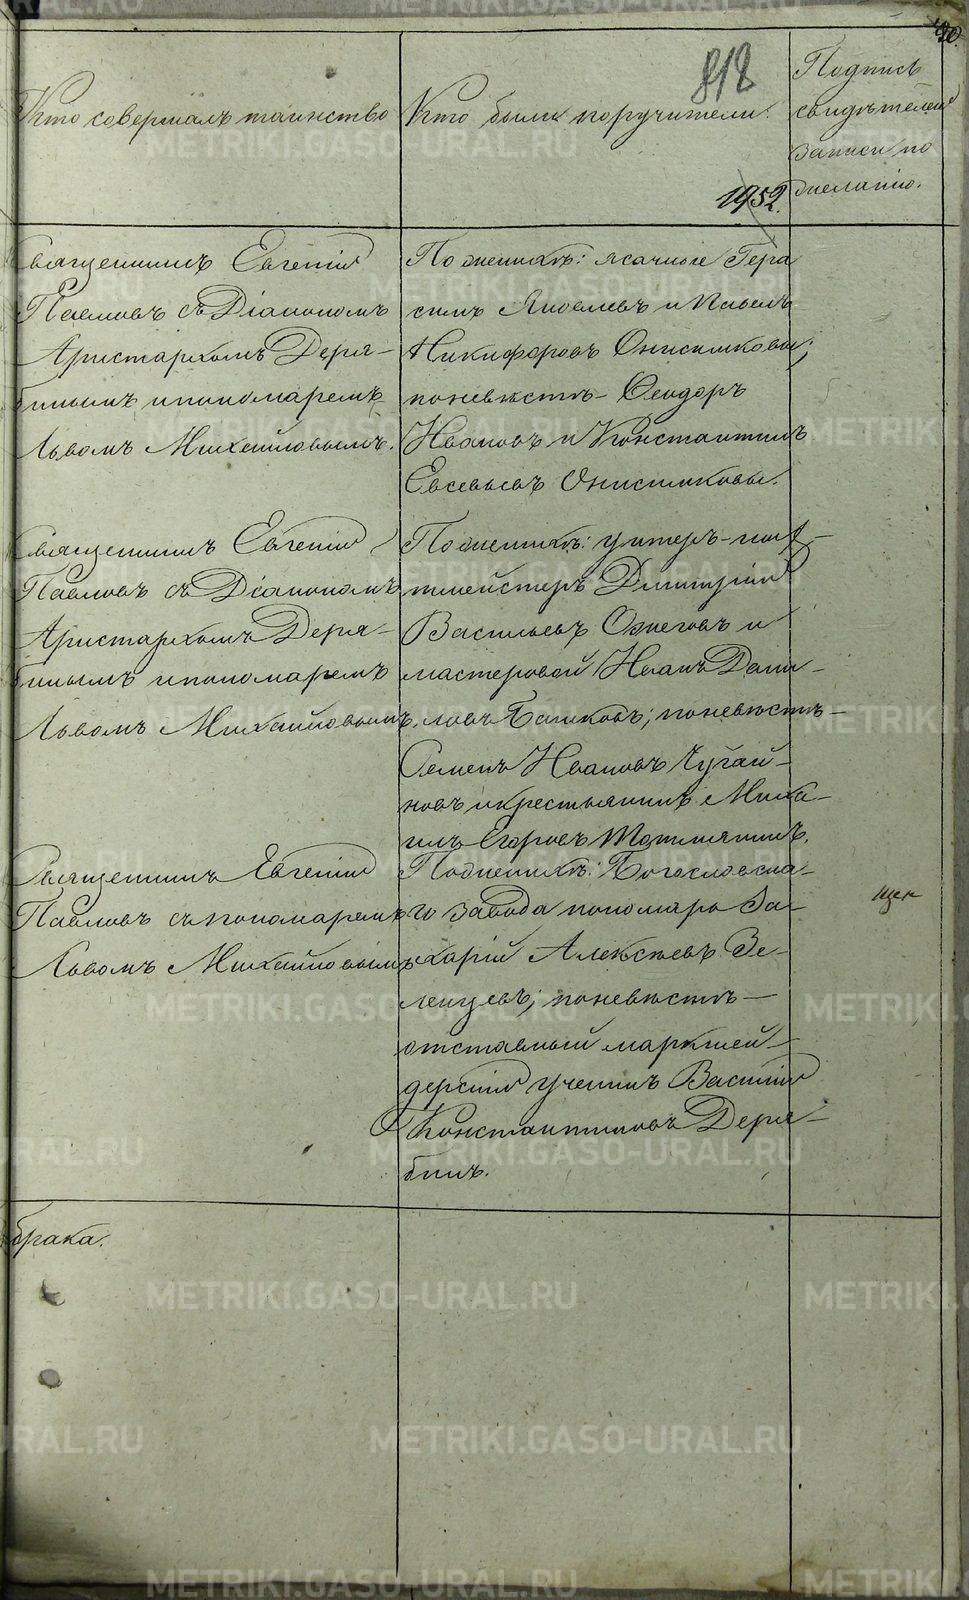 818
Кто совершалъ таинство
Кто были поручители.
Подпись
свидѣтелей
записи по
желанію.
1952.
Священникъ Евгеній
Павловъ съ Діакономъ
Аристархомъ Деря-
бинымъ и пономаремъ
Львомъ Михайловымъ.
По женихѣ: ясачные Гера
симъ Яковлевъ и Павелъ
Никифоровъ Онисимковы;
по невѣстѣ - Ѳеодоръ
Ивановъ и Константинъ
Евсевьевъ Онисимковы.
Священникъ Евгеній
Павловъ съ Діакономъ
Аристархомъ Деря-
бинымъ и пономаремъ
Львомъ Михайловымъ.
По женихѣ: унтеръ-шихт-
мейстеръ Димитрій
Васильевъ Ожеговъ и
мастеровой Иванъ Дани-
ловъ Башковъ; по невѣстѣ-
Семенъ Ивановъ Чугай-
новъ и крестьянинъ Миха-
илъ Егоровъ
Священникъ Евгеній
Павловъ съ пономаремъ
Львомъ Михайловымъ
По женихѣ: Богословска-
го завода пономарь За-
харій Алексѣевъ Зе-
ленцевъ; по невѣстѣ-
отставный маркшей-
дерскій ученикъ Василій
Константиновъ Деря-
бинъ.
брака.
METRIKI.GASO-URAL.RU